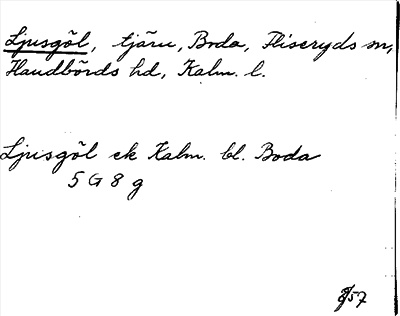 Ljusgöl, tjärn, Boda, Fliseryds sn,
Handbörds hd, Kalm. l.
Ljusgöl ek Kalm. bl. Boda
5 G 8 g
57